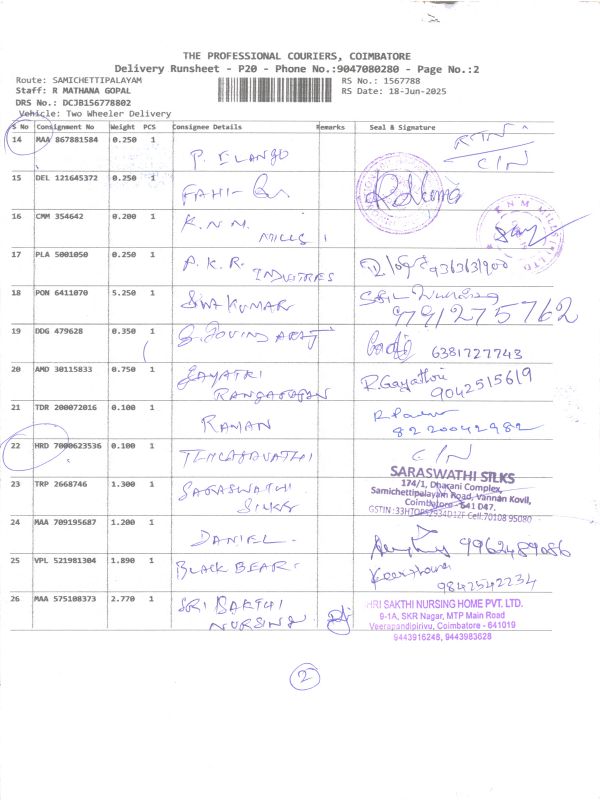 THE PROFESSIONAL COURIERS, COIMBATORE
Delivery Runsheet - P20 - Phone No.:9047080280 - Page No.:2
Route: SAMICHETTIPALAYAM RS No.: 1567788
Staff: R MATHANA GOPAL RS Date: 18-Jun-2025
DRS No.: DCJB156778802
Vehicle: Two Wheeler Delivery
S No Consignment No Weight PCS Consignee Details Remarks Seal & Signature
14 MAA 867881584 0.250 1 P. ELANGO RTN
C/N
15 DEL 121645372 0.250 1
16 CMM 354642 0.200 1 K.N.M.
MILLS
17 PLA 5001050 0.250 1 P.K.R.
INDUSTRIES
18 PON 6411070 5.250 1 SIVAKUMAR
791275762
19 DDG 479628 0.350 1 G.GOVINDARAJ
6381727743
20 AMD 30115833 0.750 1 GAYATRI R.Gayathri
RANGARAJAN 9042515619
21 TDR 200072016 0.100 1 RAMAN
8220042982
22 HRD 7000623536 0.100 1 C/N
23 TRP 2668746 1.300 1 SARASWATHI
SILKS
SARASWATHI SILKS
174/1, Dharani Complex,
Samichettipalayam Road, Vannan Kovil,
Coimbatore - 641 047.
Cell:70108 95080
24 MAA 709195687 1.200 1 DANIEL. 9962489086
25 VPL 521981304 1.890 1 BLACK BEAR. Keerthana
9842542234
26 MAA 575108373 2.770 1 SRI SAKTHI
NURSING
HRI SAKTHI NURSING HOME PVT. LTD.
9-1A, SKR Nagar, MTP Main Road
Veerapandipirivu, Coimbatore - 641019
9443916248, 9443983628
2